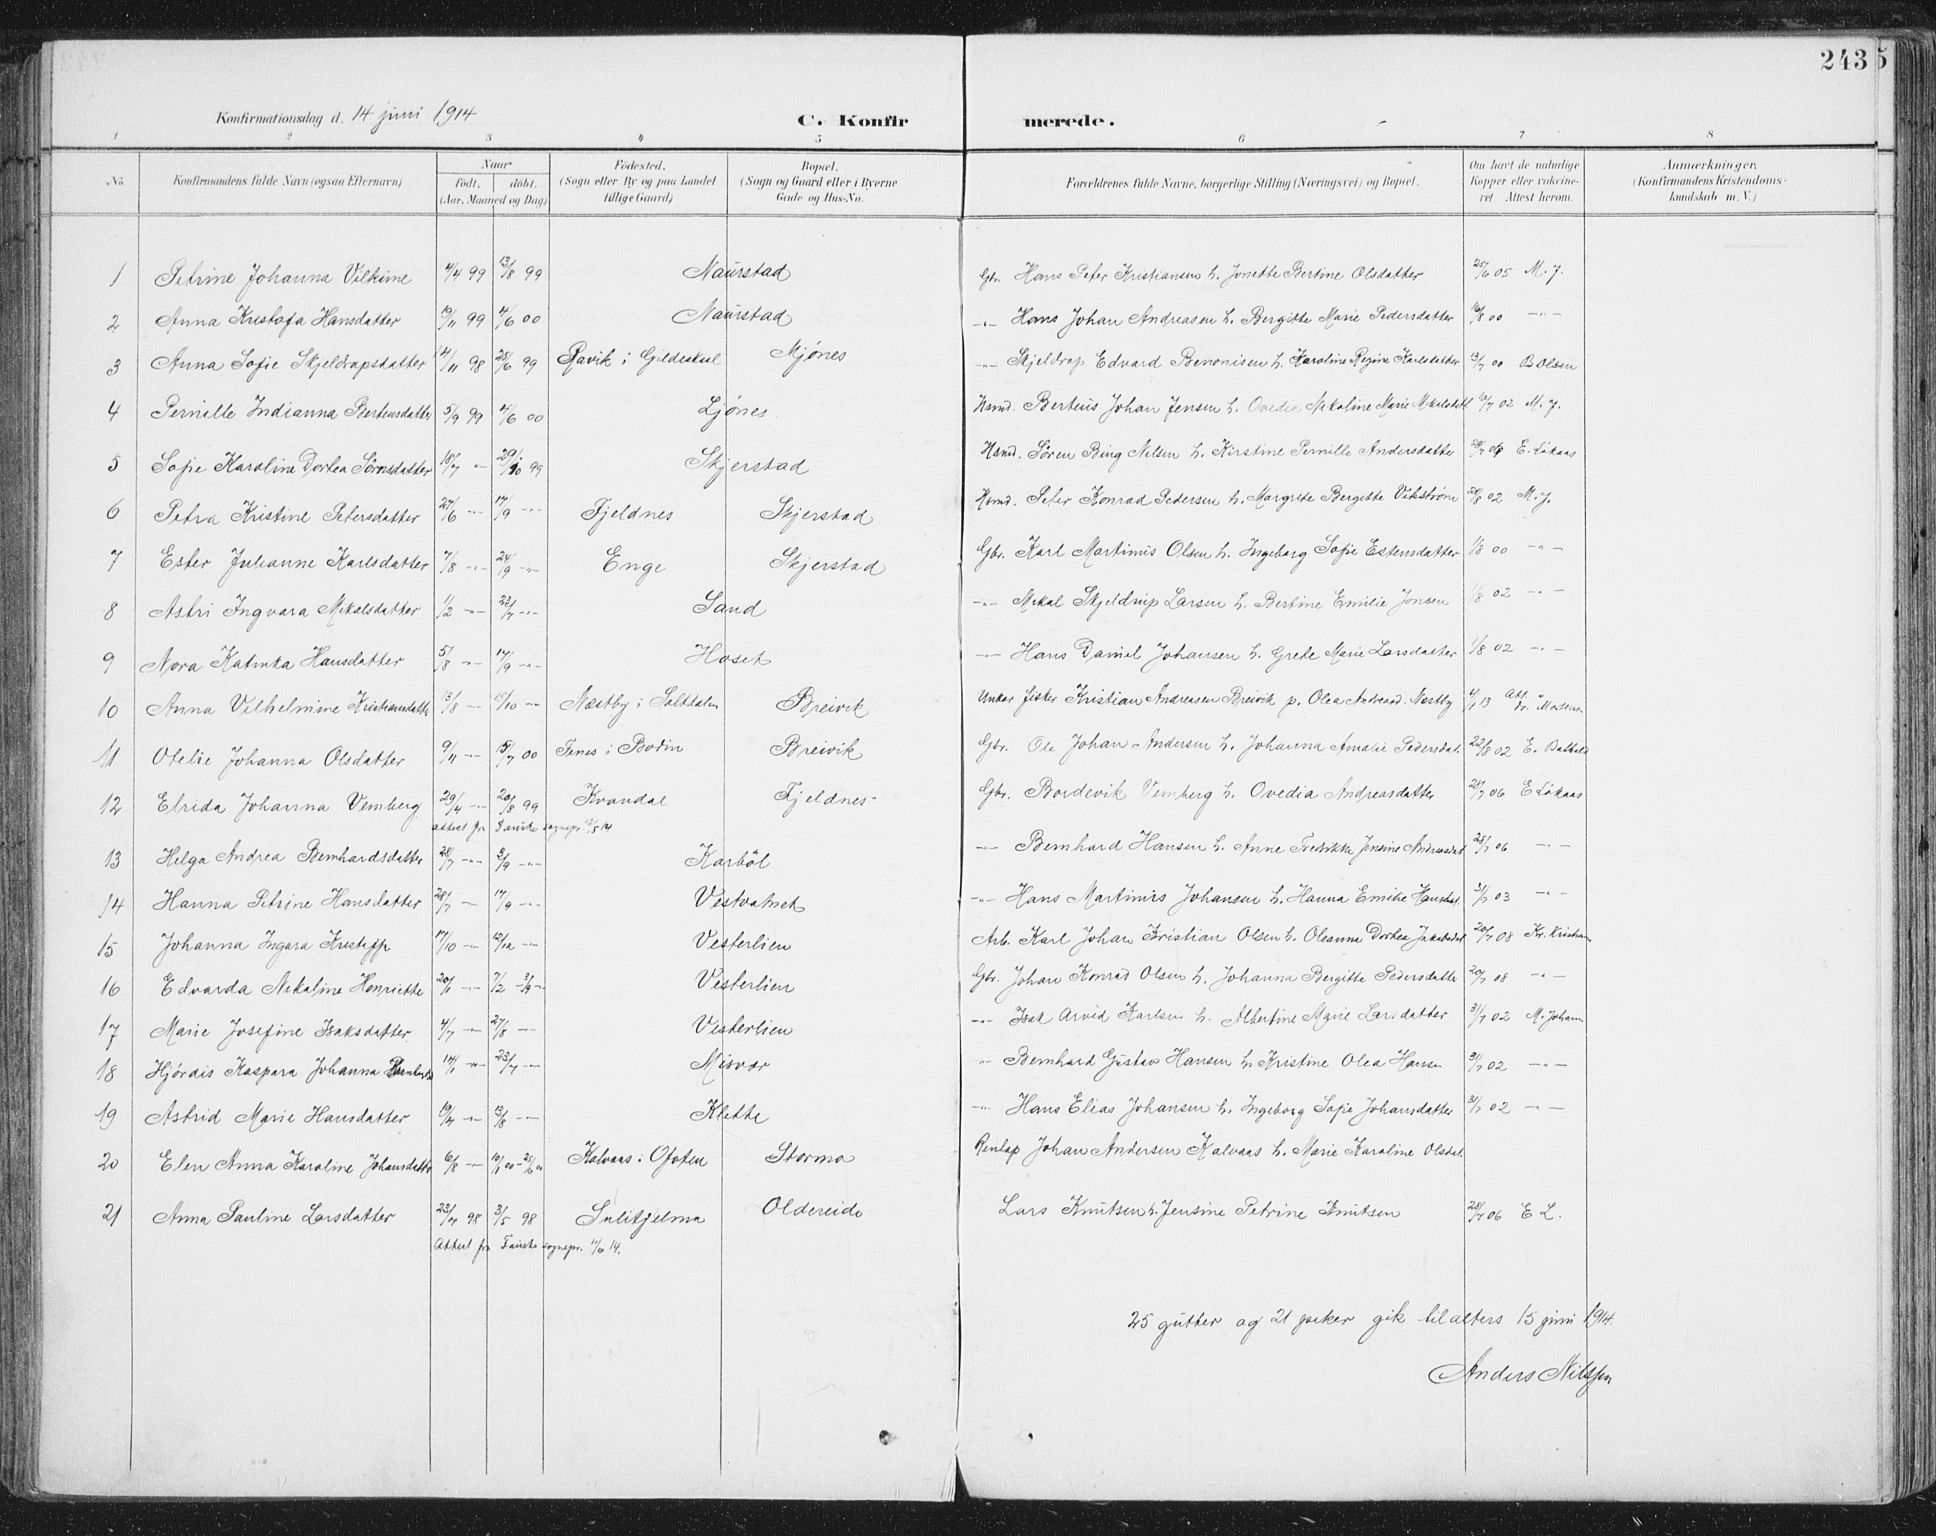 243
5
Konfirmationsdag d. 14 juni 1914
C. Konfir merede.
1 2 3 4 5 6 7 8
No. Konfirmandens fulde Navn (ogsaa Efternavn) Naar født. døbt. (Aar, Maaned og Dag) Födested. (Sogn eller By og paa Landet tillige Gaard) Bopæl. (Sogn og Gaard eller i Byerne Gade og Hus-No. Forældrenes fulde Navne, borgerlige Stilling (Næringsvei) og Bopæl. Om havt de naturlige Kopper eller vakcineret. Attest herom. Anmærkninger. (Konfirmandens Kristendomskundskab m. V.)
1 Petrine Johanna Vilkine 4/4 99 13/8 99 Naurstad Gbr. Hans Peter Kristiansen h. Jonette Bertine Olsdatter 25/6 05 M. J.
2 Anna Kristofa Hansdatter 19/11 99 4/6 00 Naurstad -"- Hans Johan Andreasen h. Bergitte Marie Pedersdatter 16/8 00 -"-
3 Anna Sofie Skjeldrapsdatter 14/11 98 25/6 99 Ravik i Gildeskaal Mjónes -"- Skjeldrop Edvard Benonisen h. Karoline Regine Karlsdatter 13/7 00 B Olsen
4 Pernille Indianna Bertensdatter 5/9 99 4/6 00 Ljónes Hsmd. Berteus Johan Jensen h. Ovedia Nikoline Marie Mikalsdatt 02 M. J.
5 Sofie Karoline Dortea Sörnsdatter 18/7 -"- 29/10 99 Skjerstad Hsmd. Sören Bing Nilsen h. Kirstine Pernille Andersdatter 06 E. Lökaas
6 Petra Kristine Petersdatter 27/6 -"- 17/9 -"- Fjeldnes Skjerstad Hsmd. Peter Konrad Pedersen h. Margrete Bergitte Vikström 02 M. J.
7 Ester Julianne Karlsdatter 7/8 -"- 24/9 -"- Enge Skjerstad Gbr. Karl Martinus Olsen h. Ingeborg Sofie Estensdatter 1/8 00 -"-
8 Astri Ingvara Mikalsdatter 1/2 -"- 23/7 -"- Sand -"- Mikal Skjeldrup Larsen h. Bertine Emilie Jonsen 1/8 02 -"-
9 Nora Katinka Hansdatter 5/8 -"- 17/9 -"- Hoset -"- Hans Daniel Johansen h. Grete Marie Larsdatter 1/8 02 -"-
10 Anna Vilhelmine Kristiansdatt 3/8 -"- 15/10 -"- Næstby i Saltdalen Breivik Unkar fisker Kristian Andreasen Breivik p. Olea Andreasd. Næstby 4/1 13
11 Otelie Johanna Olsdatter 9/11 -"- 15/7 00 Fenes i Bodin Breivik Gbr. Ole Johan Andersen h. Johanna Amalie Pedersdat. 22/8 02 E.
12 Elrida Johanna Vemberg 29/4 -"- 20/8 99 Kvandal Fjeldnes Gbr. Bordevik Vemberg h. Ovedia Andreasdatter 28/7 06 E Lökaas
attest fr Fauske sognepr. 14
13 Helga Andrea Bernhardsdatter 28/7 -"- 3/9 -"- Karból -"- Bernhard Hansen h. Anne Fredrikke Jensine Andreasdat 28/7 06 -"-
14 Hanna Petrine Hansdatter 28/7 -"- 17/9 -"- Vestvatnet -"- Hans Martinus Johansen h. Hanna Emilie Hansdat. 31/7 03 -"-
15 Johanna Ingara Kristoff 17/10 -"- 12/12 -"- Vesterlien Arb. Karl Johan Kristian Olsen h. Oleanna Dortea Jakobsdat 20/7 08 Kr. Kristian
16 Edvarda Nikoline Henriette 20/1 -"- 7/2 -"- Vesterlien Gbr. Johan Konrad Olsen h. Johanna Bergitte Pedersdatte 20/7 08 -"-
17 Marie Josefine Isaksdatter 4/7 -"- 27/8 -"- Vesterlien -"- Isak Arvid Karlsen h. Albertine Marie Larsdatter 31/7 02 M. Johan
18 Hjórdis Kaspara Johanna 14/1 -"- 23/7 -"- Misvær -"- Bernhard Gustav Hansen h. Kristine Olea Hansen 31/7 02 -"-
19 Astrid Marie Hansdatter 19/4 -"- 13/8 -"- Klette -"- Hans Elias Johansen h. Ingeborg Sofie Johansdatter 31/7 02 -"-
20 Elen Anna Karoline Johansdatter 6/8 -"- Kalvaas i Ofoten Storma Renlap Johan Andersen Kalvaas h. Marie Karoline Olsdat.
21 Anna Pauline Larsdatter 23/4 98 3/5 98 Sulitjelma Oldereide Lars Knutsen h. Jensine Petrine Knutsen 28/7 06 E L.
Attest fr Fauske sognepr. 11/6 14.
25 gutter og 21 piker gik til alters 15 juni 1914.
Anders Nilssen